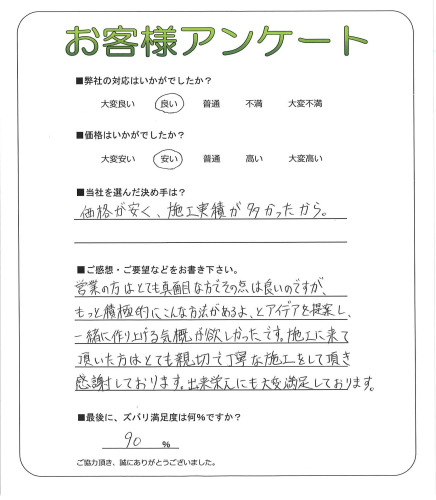 お客様アンケート
■弊社の対応はいかがでしたか？
大変良い 良い 普通 不満 大変不満
■価格はいかがでしたか？
大変安い 安い 普通 高い 大変高い
■当社を選んだ決め手は？
価格が安く、施工実積が多かったから。
■ご感想・ご要望などをお書き下さい。
営業の方はとても真面目な方でその点は良いのですが、
もっと積極的にこんな方法があるよ、とアイデアを提案し、
一緒に作り上げる気概が欲しかったです。施工に来て
頂いた方はとても親切で丁寧な施工をして頂き
感謝しております。出来栄えにも大変満足しております。
■最後に、ズバリ満足度は何%ですか？
90 %
ご協力頂き、誠にありがとうございました。